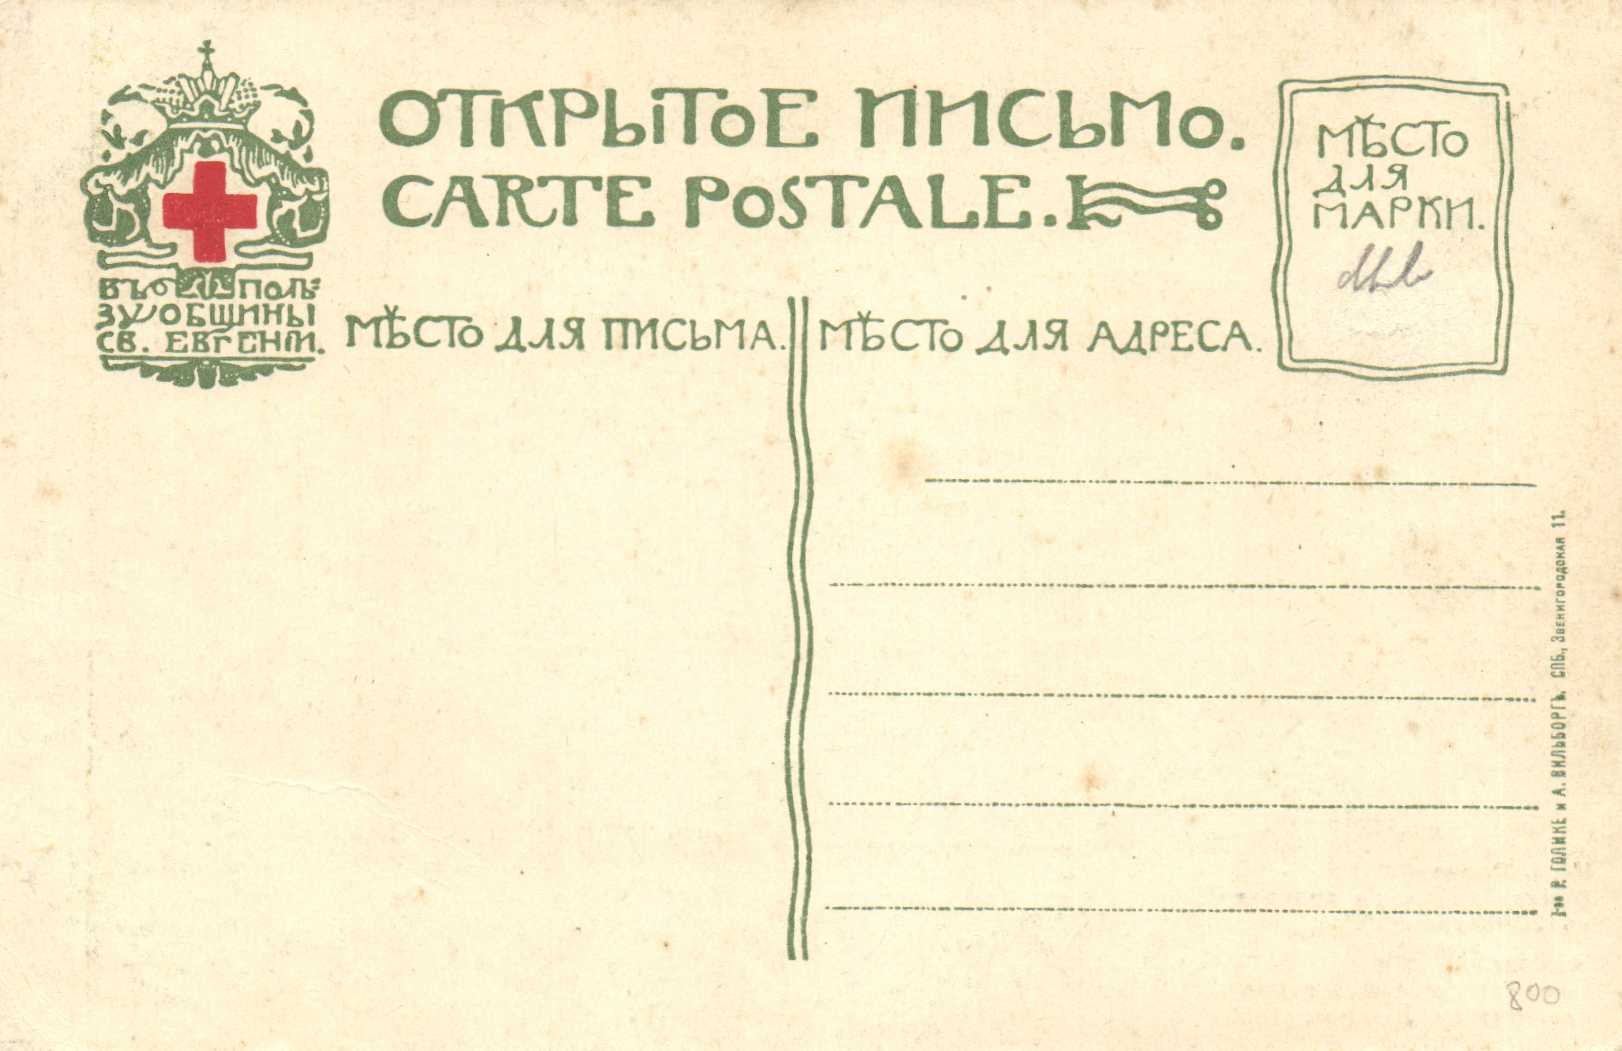 ОТКРЫТОЕ ПИСЬМО.
CARTE POSTALE.
МѢСТО
ДЛЯ
МАРКИ.
ВЪ ПОЛЬ-
ЗУ ОБЩИНЫ
СВ. ЕВГЕНІИ.
МѢСТО ДЛЯ ПИСЬМА.
МѢСТО ДЛЯ АДРЕСА.
Р. ГОЛИКЕ и А. ВИЛЬБОРГЪ. СПБ., Звенигородская 11.
800